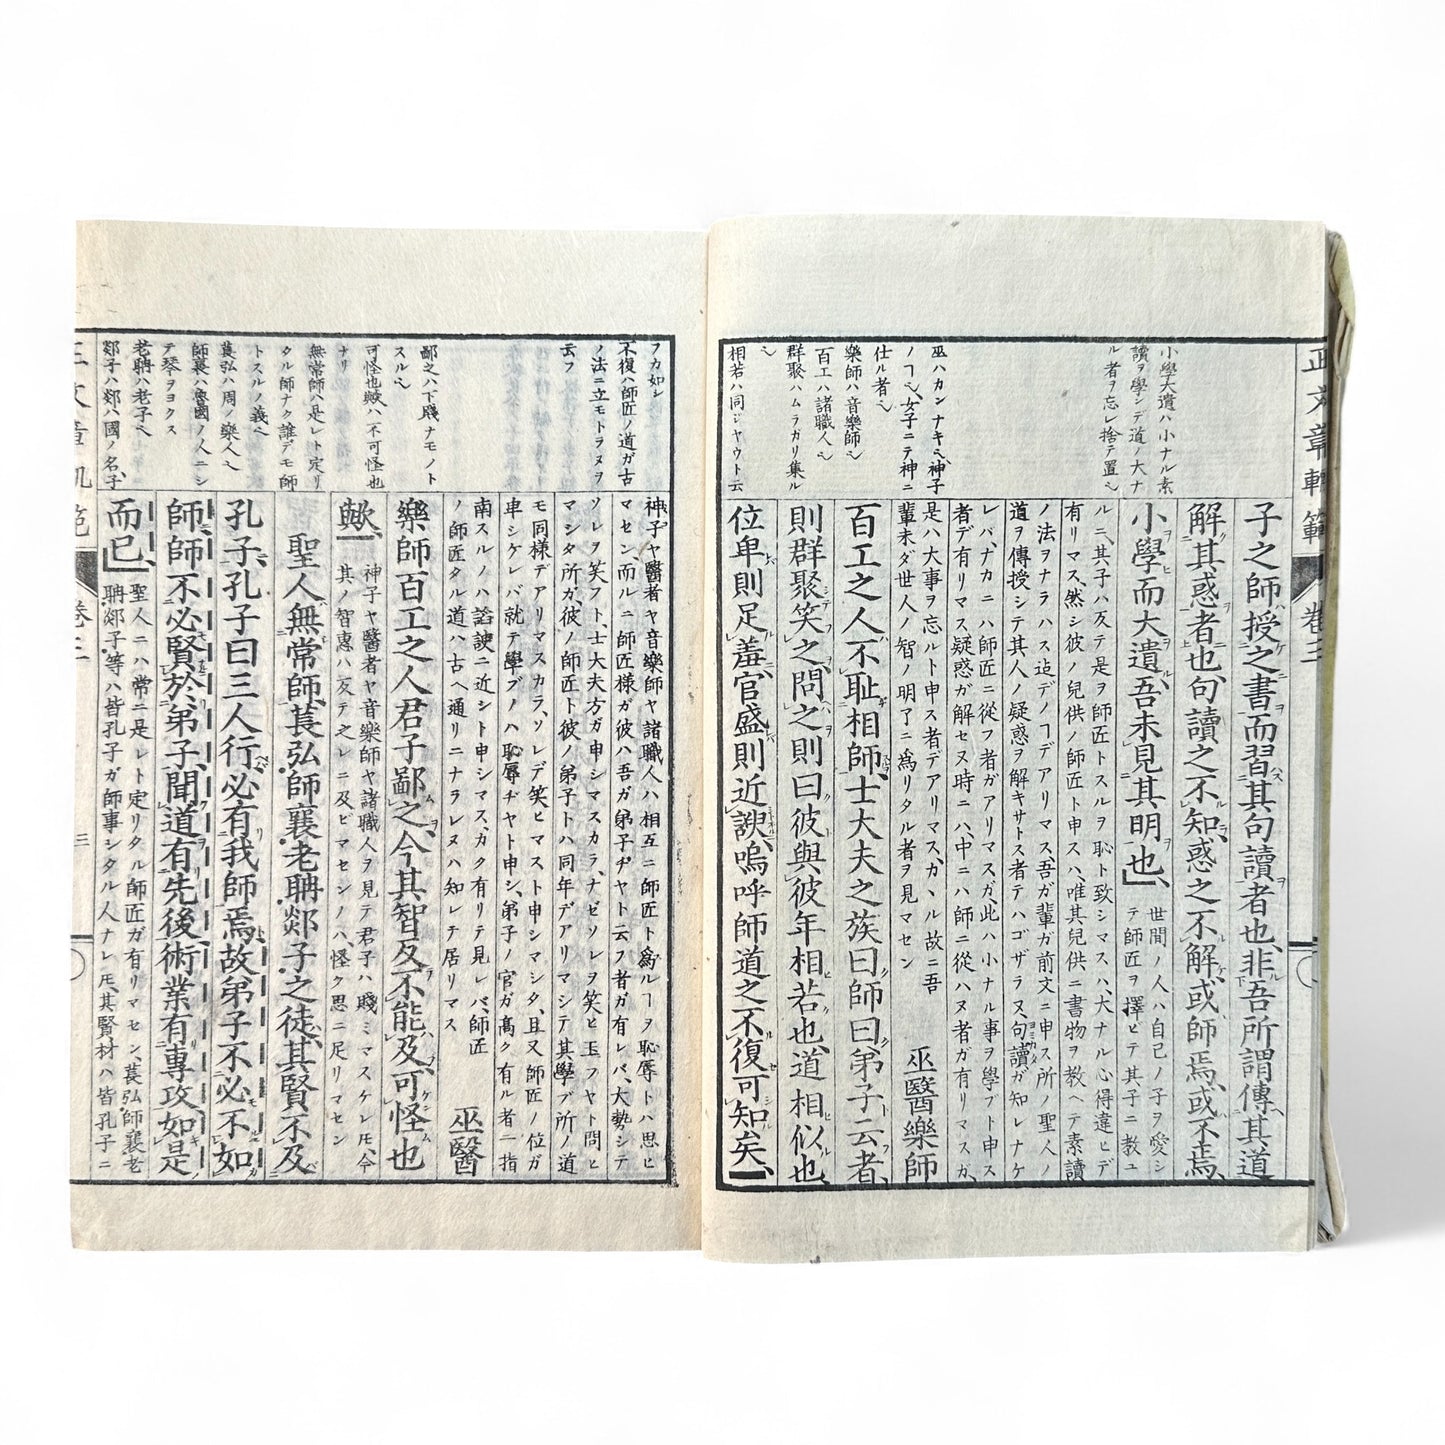 正文章軌範 卷三
小學大遺ハ小ナル素
讀ヲ學ンデ道ノ大ナ
ル者ヲ忘レ捨テ置也
巫ハカンナキ也神子
ノヿ也女子ニテ神ニ
仕ル者也
樂師ハ音樂師也
百工ハ諸職人也
群聚ハムラガリ集ル
也
相若ハ同ジヤウト云
子之師授之書而習其句讀者也非吾所謂傳其道
解其惑者也句讀之不知惑之不解或師焉或不焉
小學而大遺吾未見其明也 世間ノ人ハ自己ノ子ヲ愛シ
テ師匠ヲ擇ビテ其子ニ教ユ
ルニ其子ハ反テ是ヲ師匠トスルヲ恥ト致シマスハ大ナル心得違ヒデ
有リマス然シ彼ノ兒供ノ師匠ト申スハ唯其兒供ニ書物ヲ教ヘテ素讀
ノ法ヲナラハス迠デノヿデアリマス吾ガ輩ガ前文ニ申ス所ノ聖人ノ
道ヲ傳授シテ其人ノ疑惑ヲ解キサトス者テハゴザラヌ句讀ガ知レナケ
レバナカニハ師匠ニ從フ者ガアリマスガ此ハ小ナル事ヲ學ブト申ス
者デ有リマス疑惑ガ解セヌ時ニハ中ニハ師ニ從ハヌ者ガ有リマスガ
是ハ大事ヲ忘ルト申ス者デアリマスカヽル故ニ吾
輩未ダ世人ノ智ノ明了ニ爲リタル者ヲ見マセン 巫醫樂師
百工之人不恥相師士大夫之族曰師曰弟子云者
則群聚笑之問之則曰彼與彼年相若也道相似也
位卑則足羞官盛則近諛嗚呼師道之不復可知矣
フカ如シ
不復ハ師匠ノ道ガ古
ノ法ニ立モトラヌヲ
云フ
鄙之ハ下賤ナモノト
スル也
可怪也歟ハ不可怪也
ナリ
無常師ハ是レト定リ
タル師ナク誰デモ師
トスルノ義也
萇弘ハ周ノ樂人也
師襄ハ魯國ノ人ニシ
テ琴ヲヨクス
老聃ハ老子也
郯子ハ郯ハ國ノ名子
神子ヤ醫者ヤ音樂師ヤ諸職人ハ相互ニ師匠ト爲ルヿヲ恥辱トハ思ヒ
マセン而ルニ師匠樣ガ彼ハ吾ガ弟子ヂヤト云フ者ガ有レバ大勢シテ
ソレヲ笑フト士大夫方ガ申シマスカラナゼソレヲ笑ヒ玉フヤト問ヒ
マシタ所ガ彼ノ師匠ト彼ノ弟子トハ同年デアリマシテ其學ブ所ノ道
モ同樣デアリマスカラソレデ笑ヒマスト申シマシタ且又師匠ノ位ガ
卑シケレバ就テ學ブノハ恥辱ヂヤト申シ弟子ノ官ガ高ク有ル者ー指
南スルノハ諂諛ニ近シト申シマスカク有リテ見レバ師匠
ノ師匠タル道ハ古ヘ通リニナラレヌハ知レテ居リマス 巫醫
樂師百工之人君子鄙之今其智反不能及可怪也
歟 神子ヤ醫者ヤ音樂師ヤ諸職人ヲ見テ君子ハ賤ミマスケレ𪜈今
其ノ智惠ハ反テ之レニ及ビマセンノハ怪ク思ニ足リマセン
聖人無常師萇弘師襄老聃郯子之徒其賢不及
孔子孔子曰三人行必有我師焉故弟子不必不如
師師不必賢於弟子聞道有先後術業有專攻如是
而已 聖人ニハ常ニ是レト定リタル師匠ガ有リマセン萇弘師襄老
聃郯子等ハ皆孔子ガ師事シタル人ナレ𪜈其賢材ハ皆孔子ニ
正文章軌範 卷三 三